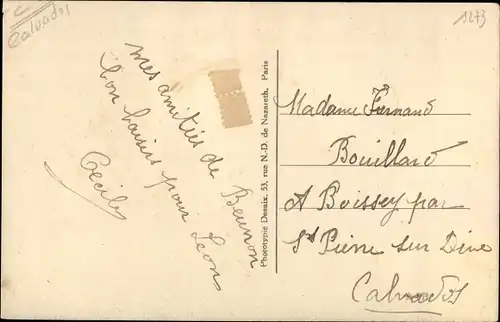 C
Calvados
1273
mes amitiés de Beuvron
bon baisers pour Leon
Cecile
Phototypie Desaix, 53, rue N.-D. de Nazareth, Paris
Madame Fernand
Bouillard
A Boissey par
St Pierre sur Dive
Calvados